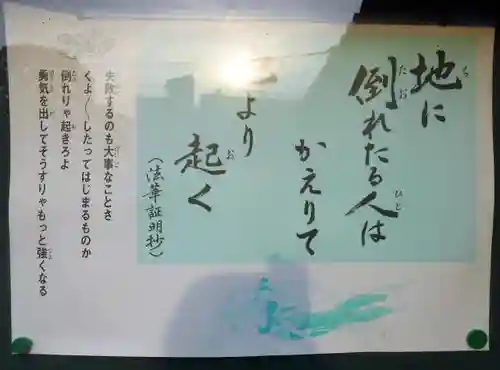 地に
倒れたる人は
かえりて
より
起く
(法華証明抄)
失敗するのも大事なことさ
くよ〱したってはじまるものか
倒れりゃ起きろよ
勇気を出してそうすりゃもっと強くなる